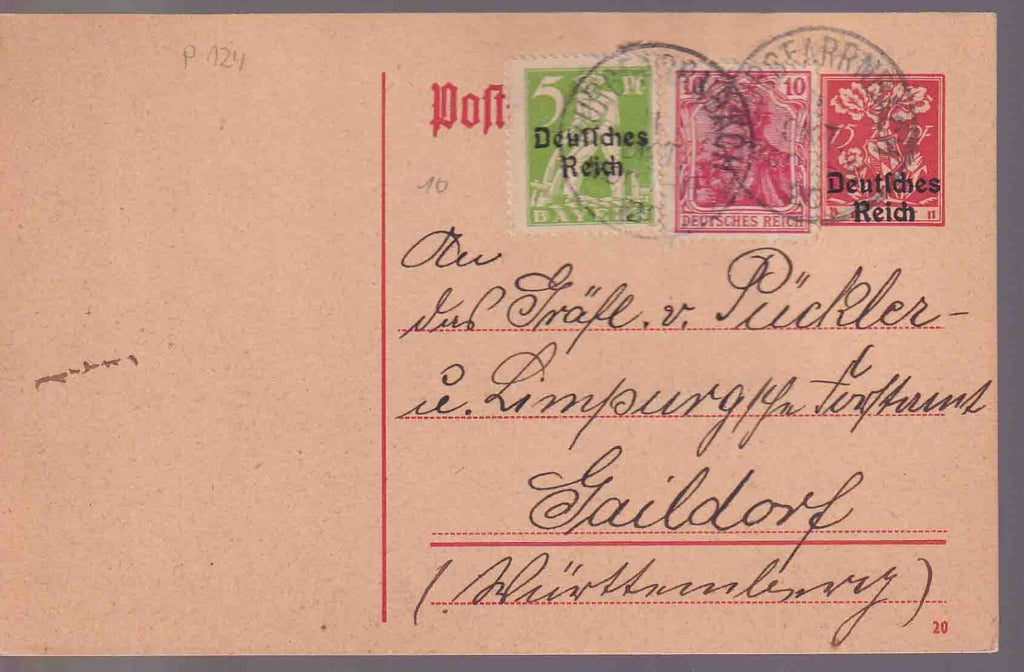 P 124
Post
10
5 Pf
Deutsches
Reich
BAYERN
10 10
DEUTSCHES REICH
15 PF
Deutsches
Reich
An
das Gräfl. v. Pückler-
u. Limpurg'sche Forstamt
Gaildorf
(Württemberg)
20